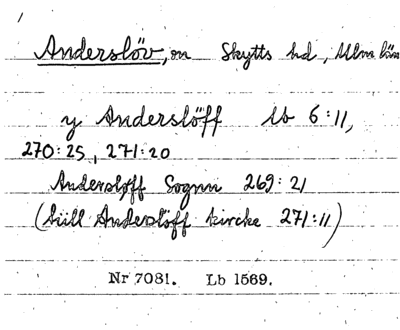 Anderslöv, sn Skytts hd, Mlm län
y Anderslöff Lb 6:11,
270:25, 271:20
Anderslöff Sognn 269:21
(till Anderslöff kircke 271:11)
Nr 7081. Lb 1569.